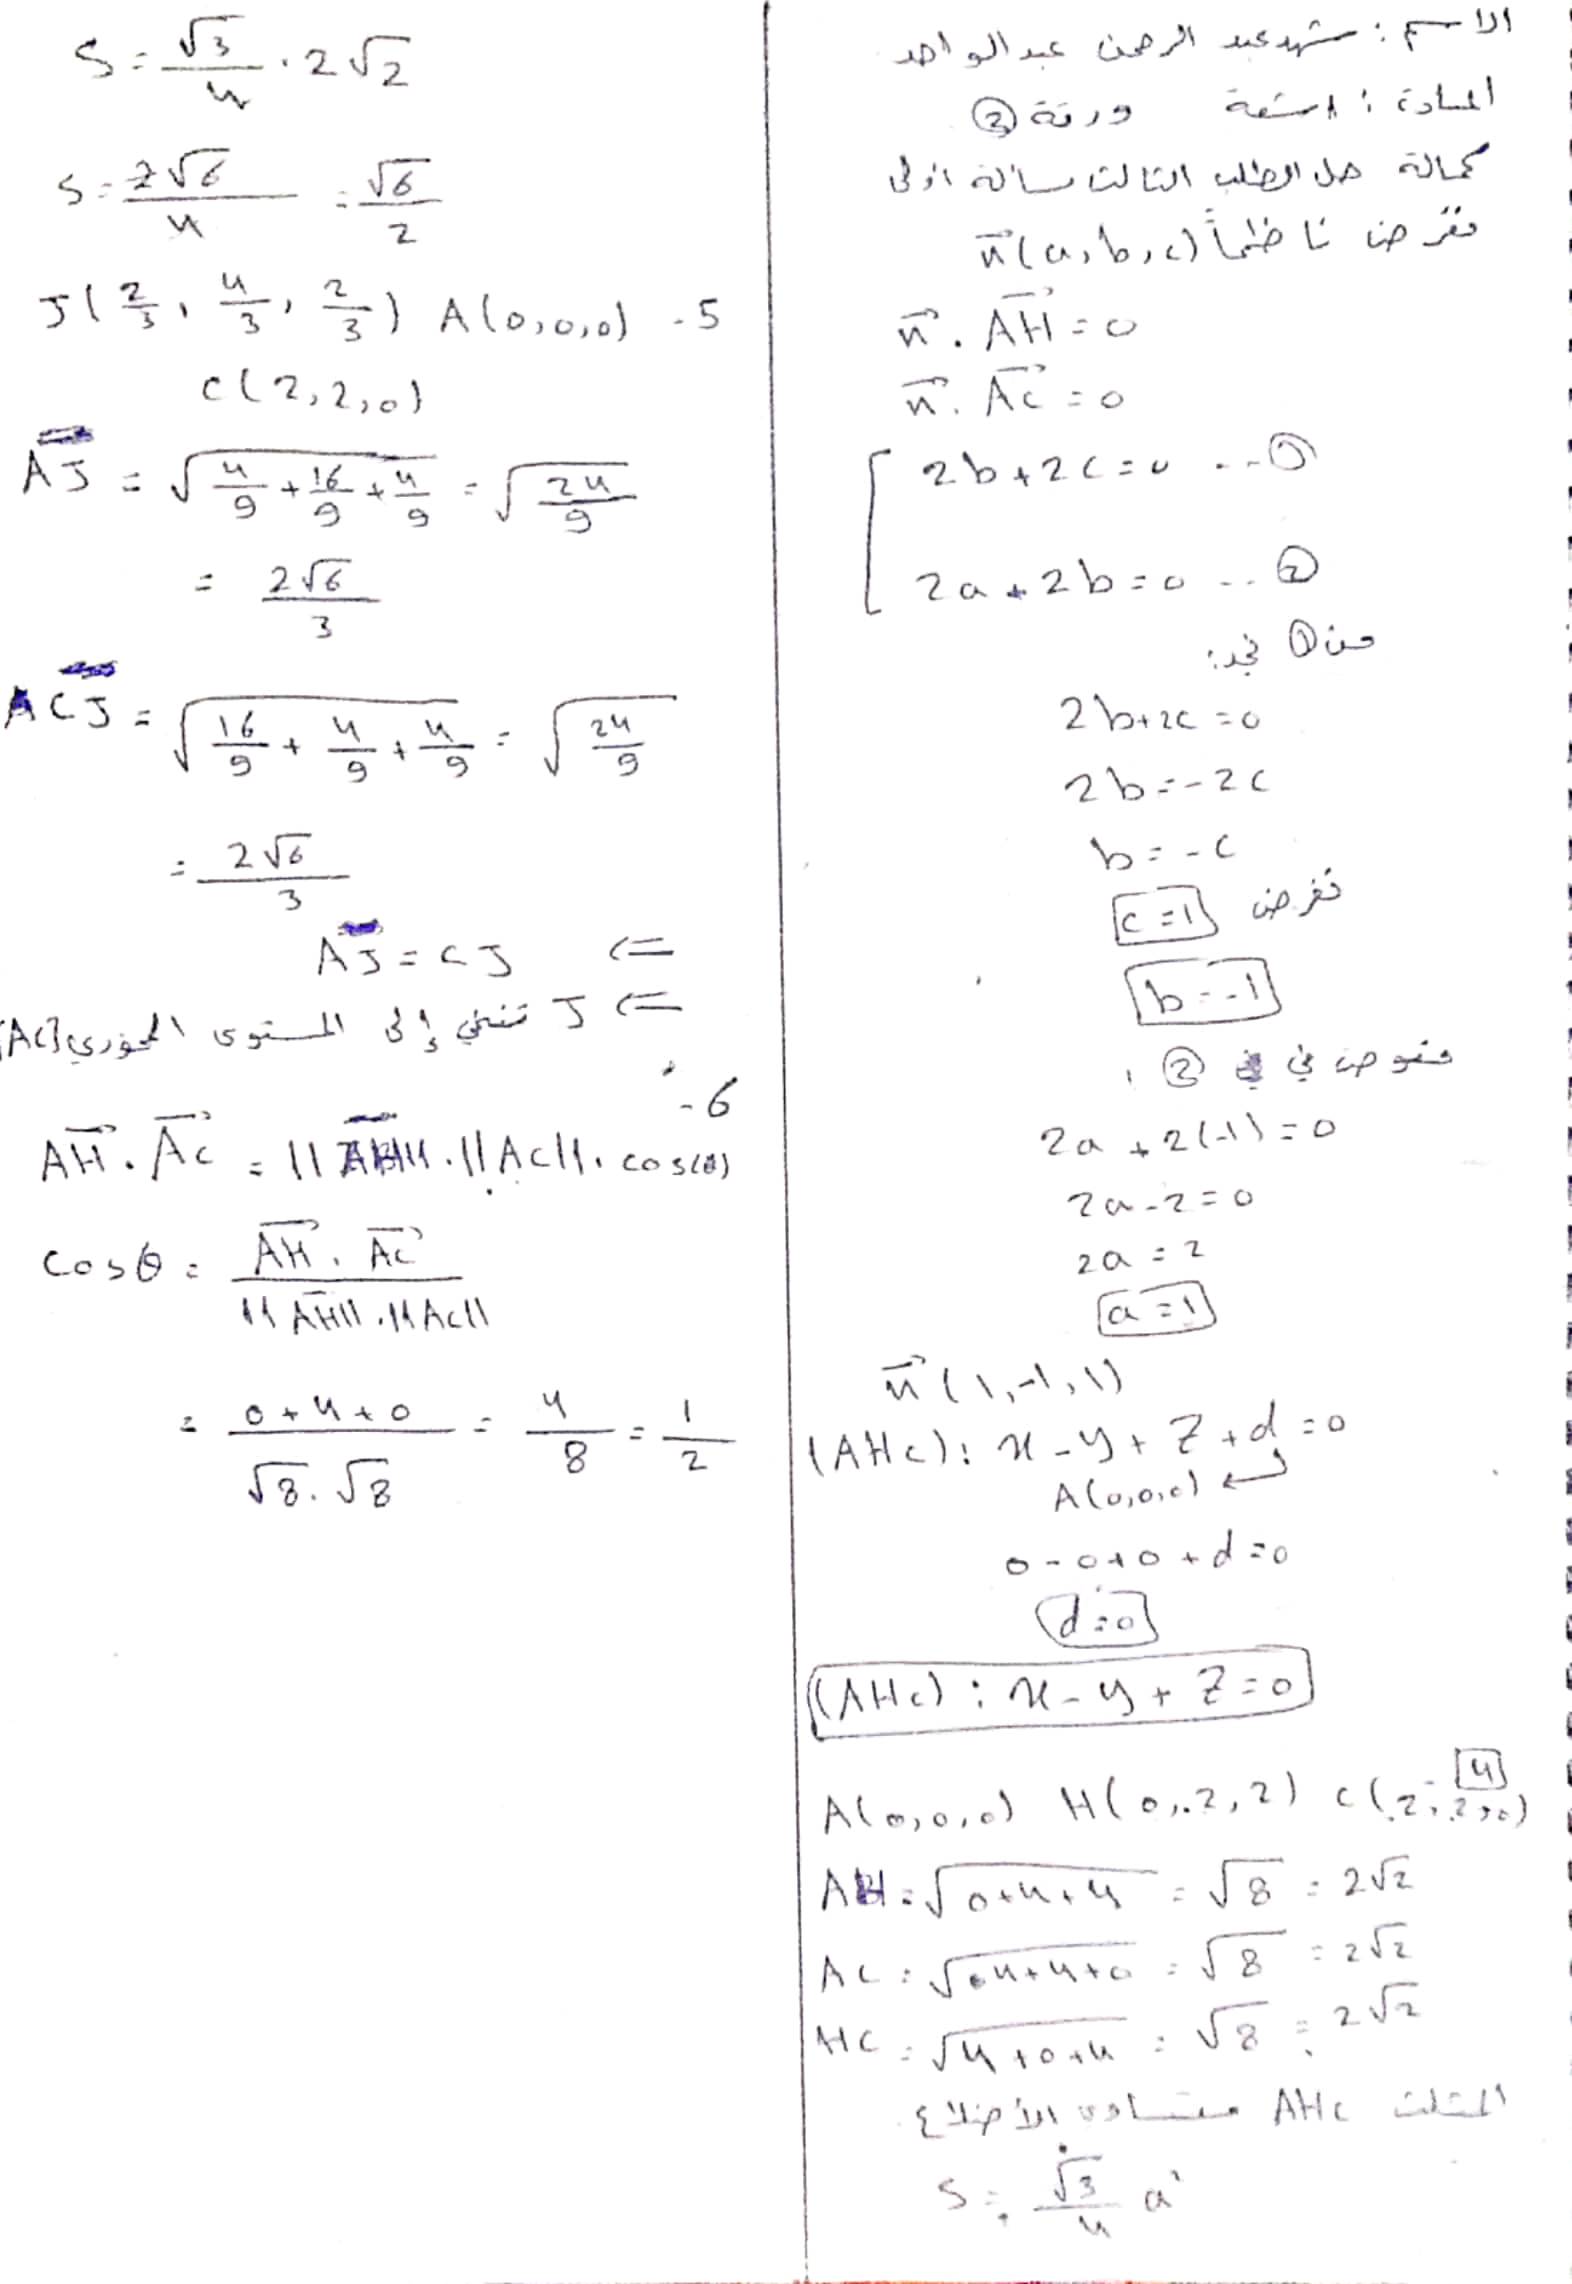 الاسم : شهد عبد الرحمن عبد الواحد
المادة : اشعة ورقة ③
كمالة حل الطلب الثالث مسألة اولى
نفرض ناظماً n⃗(a,b,c)
n⃗ . AH⃗ = 0
n⃗ . AC⃗ = 0
2b + 2c = 0 ... ①
2a + 2b = 0 ... ②
من ① نجد:
2b + 2c = 0
2b = -2c
b = -c
نفرض c = 1
b = -1
نعوض في ② :
2a + 2(-1) = 0
2a - 2 = 0
2a = 2
a = 1
n⃗ (1,-1,1)
(AHC): x - y + z + d = 0
A(0,0,0)
0 - 0 + 0 + d = 0
d = 0
(AHC): x - y + z = 0
4
A(0,0,0) H(0,2,2) C(2,2,0)
AH = √(0+4+4) = √8 = 2√2
AC = √(4+4+0) = √8 = 2√2
HC = √(4+0+4) = √8 = 2√2
المثلث AHC متساوي الأضلاع
S = √3/4 a²
S = √3/4 . 2√2
S = 2√6/4 = √6/2
J(2/3, 4/3, 2/3) A(0,0,0) - 5
C(2,2,0)
AJ = √(4/9 + 16/9 + 4/9) = √(24/9)
= 2√6/3
CJ = √(16/9 + 4/9 + 4/9) = √(24/9)
= 2√6/3
AJ = CJ ⇐
⇐ J تنتمي إلى المستوى المحوري [AC]
- 6
AH⃗ . AC⃗ = ||AH|| . ||AC|| . cos(θ)
cos θ = AH⃗ . AC⃗ / ||AH|| . ||AC||
= 0+4+0 / √8 . √8 = 4/8 = 1/2